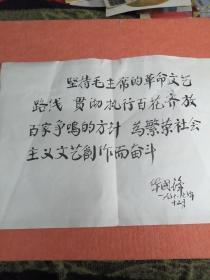 坚持毛主席的革命文艺
路线 贯彻执行百花齐放
百家争鸣的方针 为繁荣社会
主义文艺創作而奋斗
华國锋
十二月